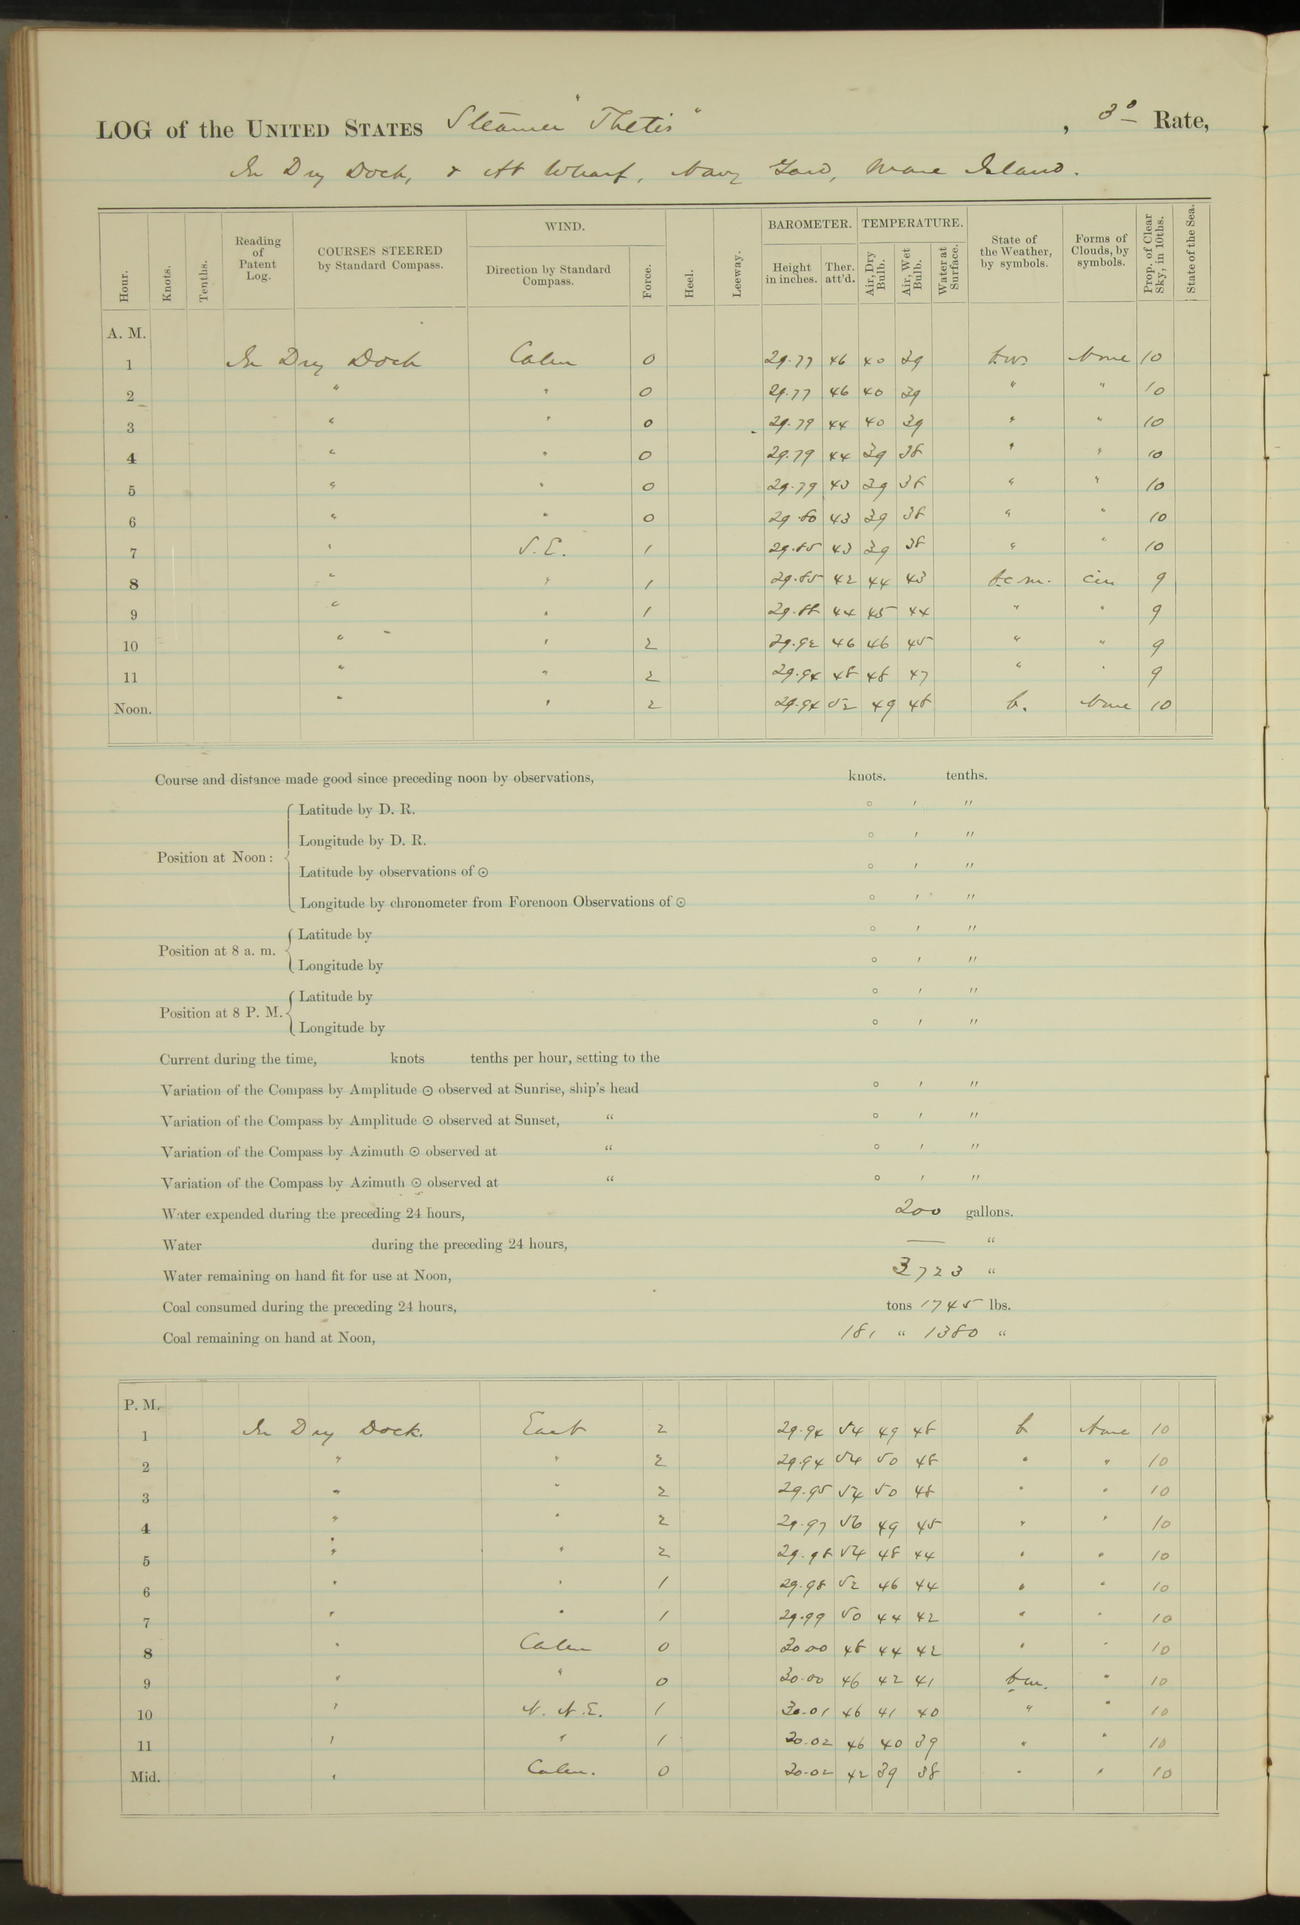 LOG of the UNITED STATES Steamer "Thetis", 3° Rate,
In Dry Dock, & At Wharf, Navy Yard, Mare Island.
Hour. Knots. Tenths. Reading of Patent Log. COURSES STEERED by Standard Compass. WIND. Direction by Standard Compass. Force. Heel. Leeway. BAROMETER. Height in inches. Ther. att'd. TEMPERATURE. Air, Dry Bulb. Air, Wet Bulb. Water at Surface. State of the Weather, by symbols. Forms of Clouds, by symbols. Prop. of Clear Sky, in 10ths. State of the Sea.
A. M.
1 In Dry Dock Calm 0 29.77 46 40 39 None 10
2 " " 0 29.77 46 40 39 " " 10
3 " " 0 29.79 44 40 39 " " 10
4 " " 0 29.79 44 39 38 " " 10
5 " " 0 29.79 43 39 38 " " 10
6 " " 0 29.80 43 39 38 " " 10
7 " S.E. 1 29.85 43 39 38 " " 10
8 " " 1 29.85 42 44 43 b.c.m. cir 9
9 " " 1 29.88 44 45 44 " " 9
10 " " 2 29.92 46 46 45 " " 9
11 " " 2 29.94 48 48 47 " " 9
Noon. " " 2 29.94 52 49 48 b. None 10
Course and distance made good since preceding noon by observations, knots. tenths.
Position at Noon: Latitude by D. R. ° ′ ″
Longitude by D. R. ° ′ ″
Latitude by observations of ⊙ ° ′ ″
Longitude by chronometer from Forenoon Observations of ⊙ ° ′ ″
Position at 8 a. m. Latitude by ° ′ ″
Longitude by ° ′ ″
Position at 8 P. M. Latitude by ° ′ ″
Longitude by ° ′ ″
Current during the time, knots tenths per hour, setting to the
Variation of the Compass by Amplitude ⊙ observed at Sunrise, ship's head ° ′ ″
Variation of the Compass by Amplitude ⊙ observed at Sunset, " ° ′ ″
Variation of the Compass by Azimuth ⊙ observed at " ° ′ ″
Variation of the Compass by Azimuth ⊙ observed at " ° ′ ″
Water expended during the preceding 24 hours, 200 gallons.
Water during the preceding 24 hours, — "
Water remaining on hand fit for use at Noon, 3723 "
Coal consumed during the preceding 24 hours, tons 1745 lbs.
Coal remaining on hand at Noon, 181 " 1380 "
P. M.
1 In Dry Dock. East 2 29.94 54 49 48 b None 10
2 " " 2 29.94 54 50 48 " " 10
3 " " 2 29.95 54 50 48 " " 10
4 " " 2 29.97 56 49 45 " " 10
5 " " 2 29.98 54 48 44 " " 10
6 " " 1 29.98 52 46 44 " " 10
7 " " 1 29.99 50 44 42 " " 10
8 " Calm 0 30.00 48 44 42 " " 10
9 " " 0 30.00 46 42 41 b.m. " 10
10 " N. N.E. 1 30.01 46 41 40 " " 10
11 " " 1 30.02 46 40 39 " " 10
Mid. " Calm. 0 30.02 42 39 38 " " 10